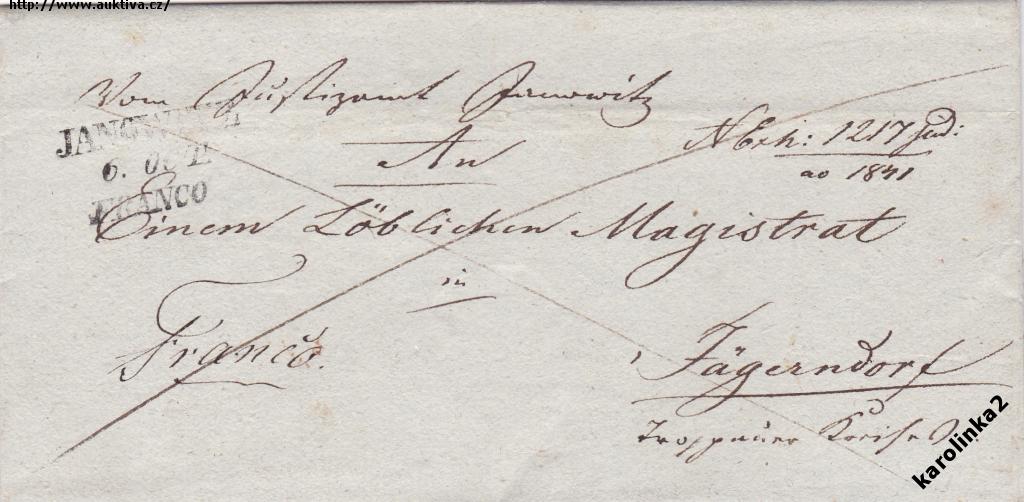 http://www.auktiva.cz/
Vom Justizamt Janowitz
JANOWITZ
6. OCT.
FRANCO
An
NExh: 1217 Jud:
ao 1841
Einem Löblichen Magistrat
in
Franco.
Jägerndorf
Troppauer Kreises
karolinka2